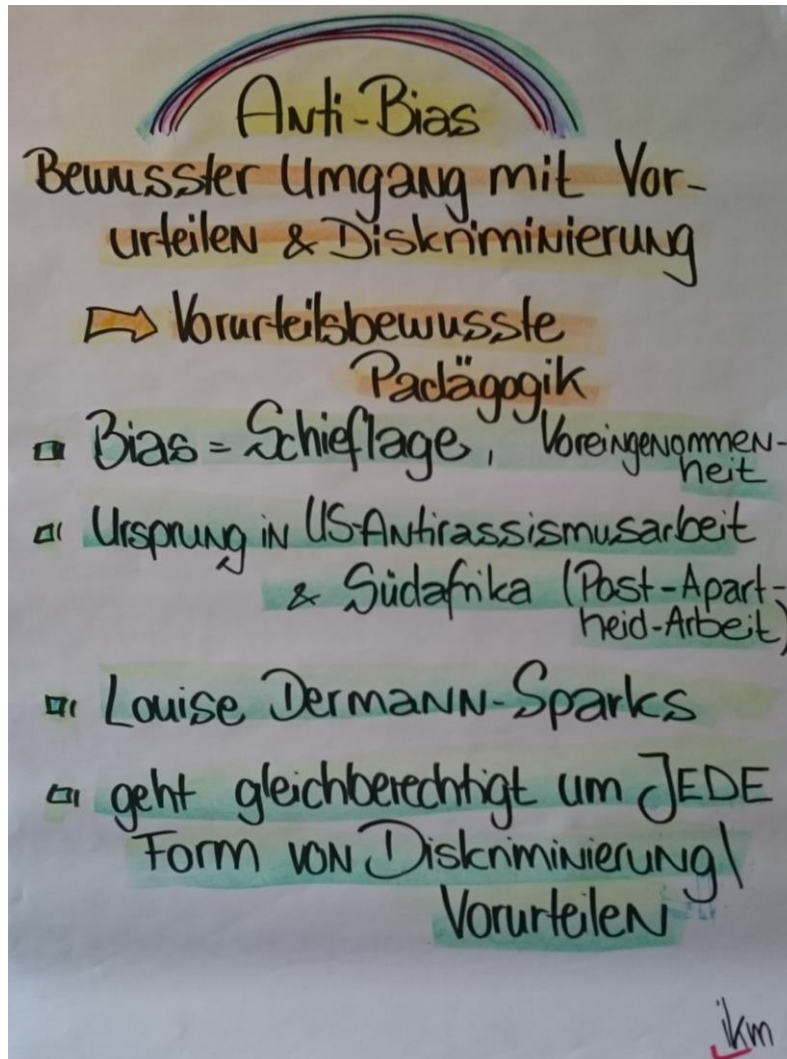 Anti-Bias
Bewusster Umgang mit Vor-
urteilen & Diskriminierung
Vorurteilsbewusste
Pädagogik
Bias = Schieflage, Voreingenommen-
heit
Ursprung in US-Antirassismusarbeit
& Südafrika (Post-Apart-
heid-Arbeit)
Louise Dermann-Sparks
geht gleichberechtigt um JEDE
Form von Diskriminierung\
Vorurteilen
ikm